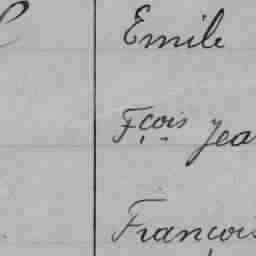 Emile
Fçois Jea
François